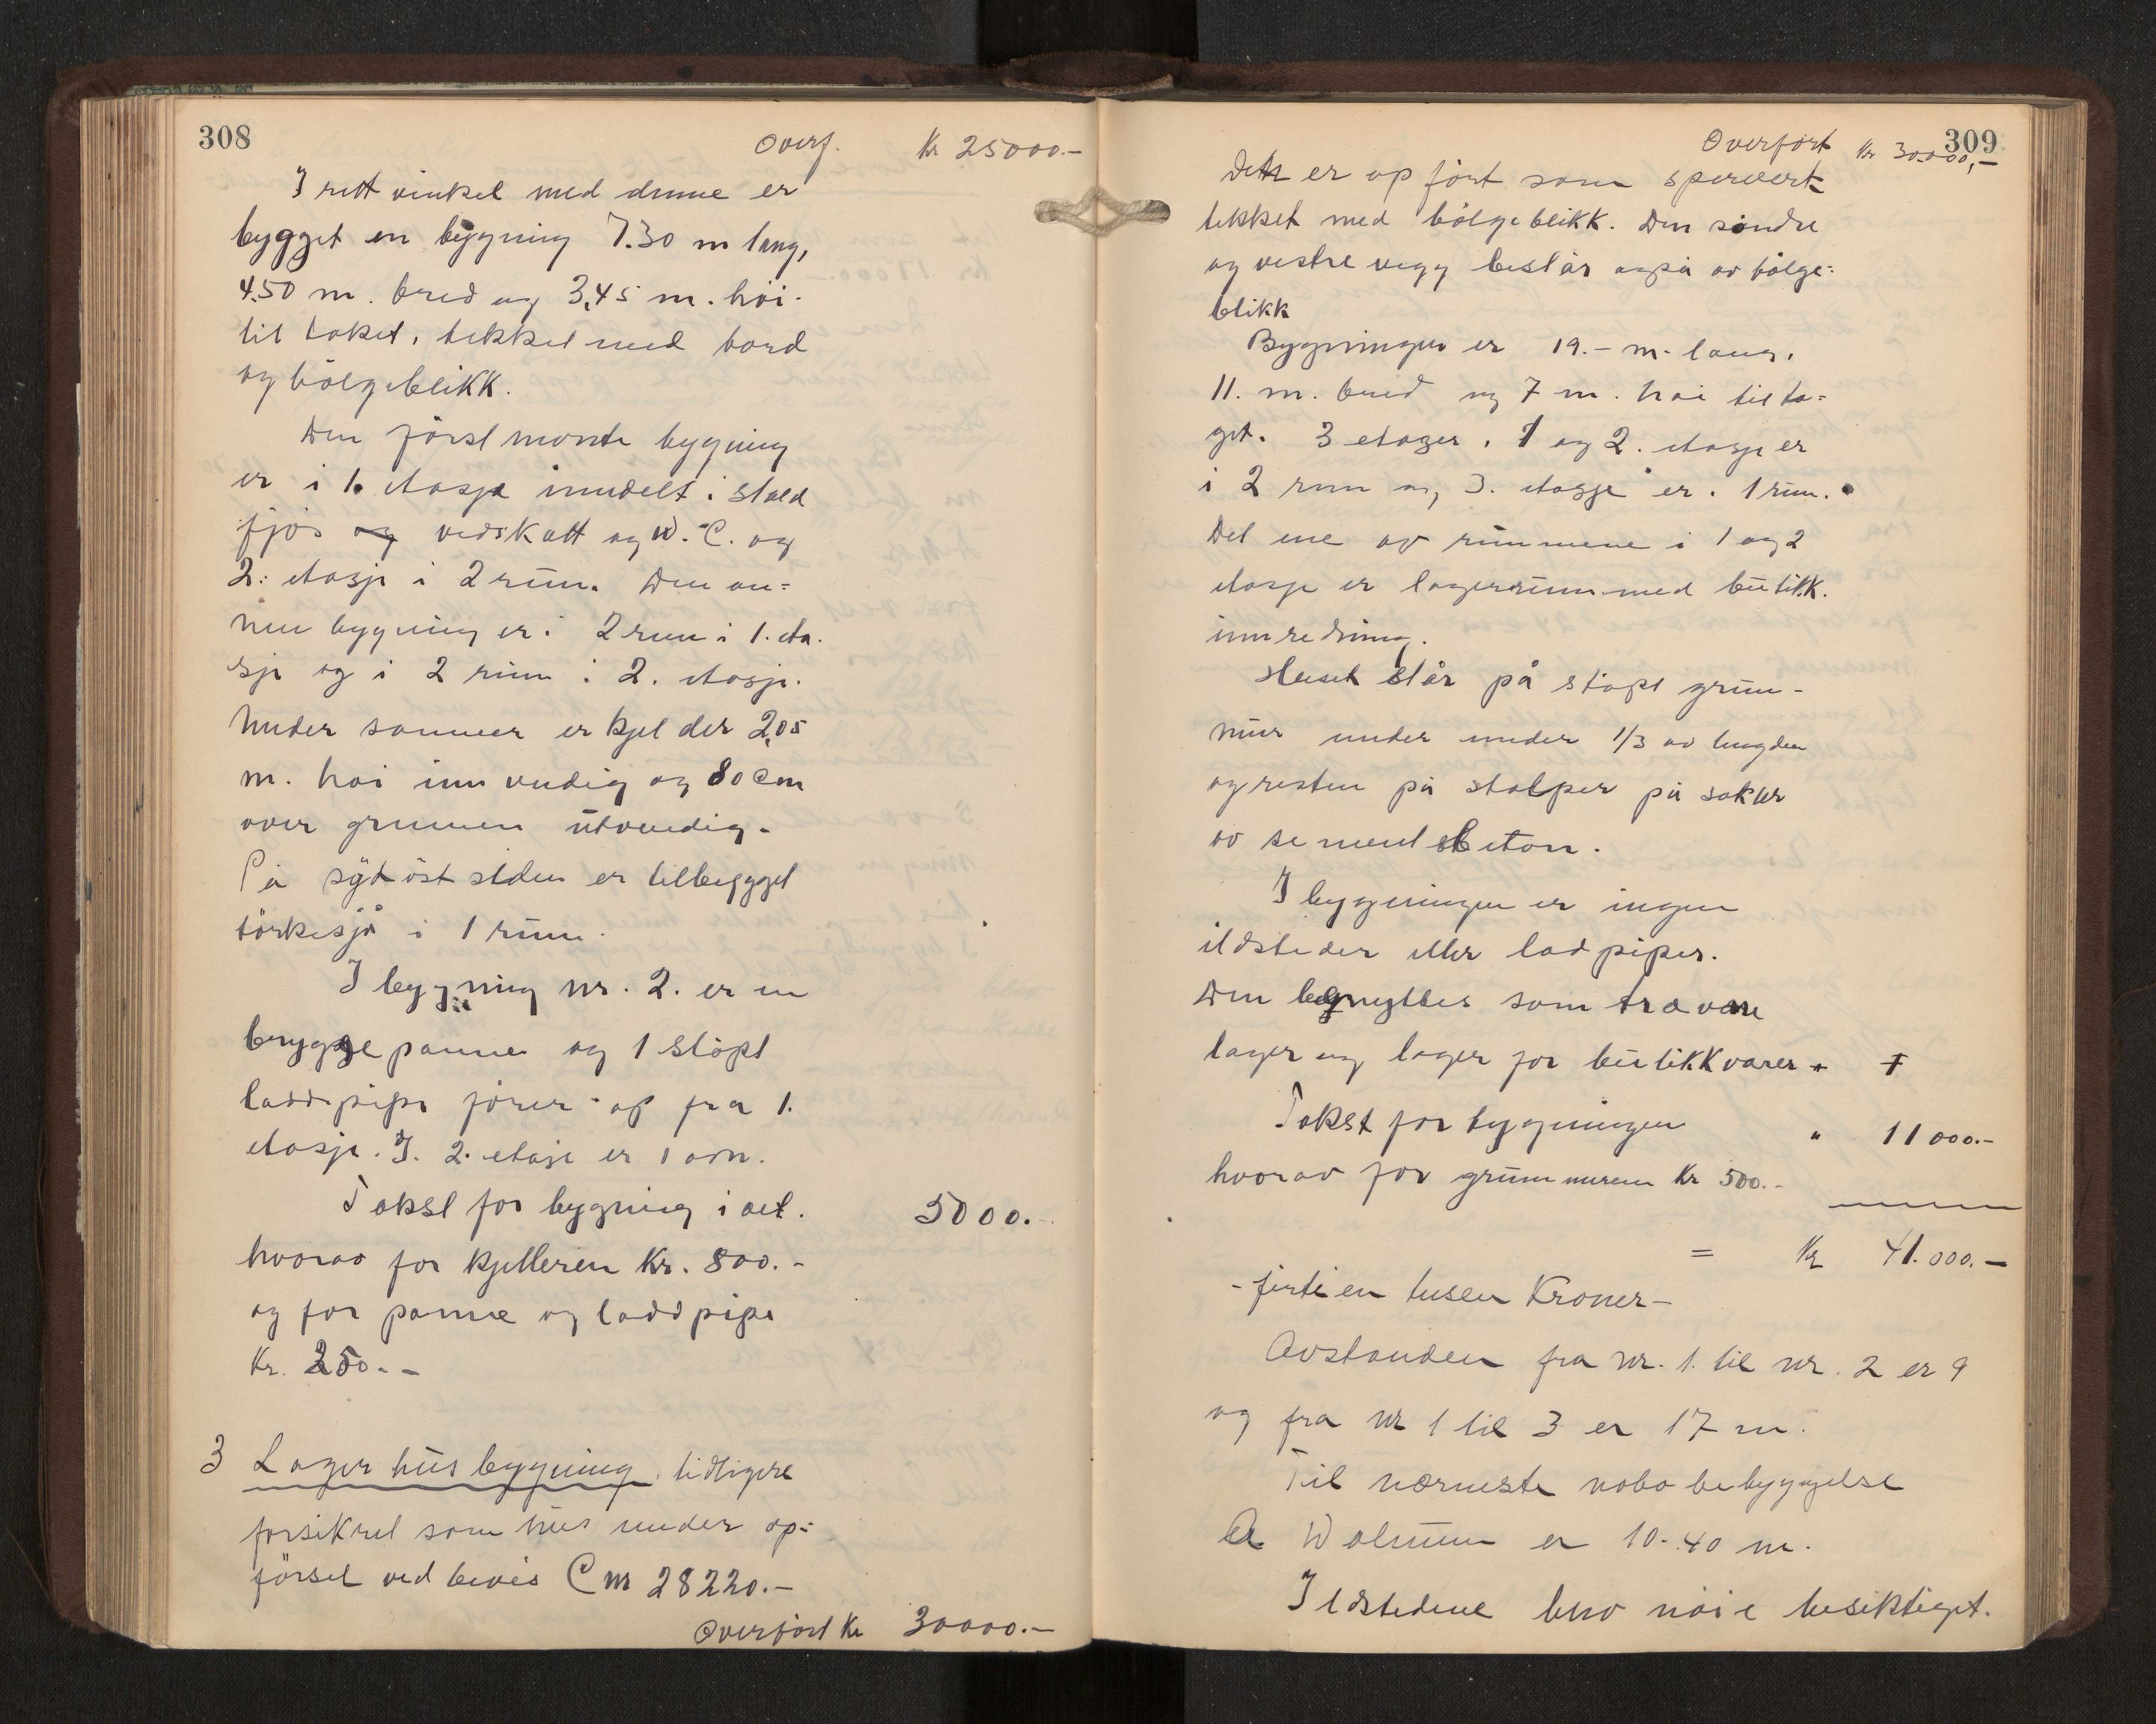 308
Overf. Kr 25000.-
I rett vinkel med denne er
bygget en bygning 7.30 m lang,
4.50 m. bred og 3,45 m. höi.
til taket, tekket med bord
og bölgeblikk.
Den först nevnte bygning
er i 1. etasje inndelt i stald
fjös og vedskott og W.C. og
2: etasje i 2 rum. Den an=
nen bygning er i 2 rum i 1. eta.
sje og i 2 rum i 2. etasje.
Under sammen er kjelder 2,05
m. höi innvendig og 80 cm
over grunnen utvendig.
På sydöst siden er tilbygget
törkesjå i 1 rum.
I bygning nr. 2. er en
bryggepanne og 1 stöpt
laddpipe förer op fra 1.
etasje. I. 2. etasje er 1 ovn.
Takst for bygning i alt. 5000.-
hvorav for kjelleren Kr. 800.-
og for panne og laddpipe
Kr. 250.-
3 Lagerhusbygning tidligere
forsikret som hus under op=
försel ved bevis C nr 28220.-
Overfört Kr 30000.-
309
Overfört Kr 30.000,-
Dette er opfört som sperverk
tekket med bölgeblikk. Den söndre
og vestre vegg består også av bölge=
blikk
Bygningen er 19.- m. lang,
11. m. bred og 7 m. höi til ta=
get. 3 etager. 1 og 2. etasje er
i 2 rum og 3. etasje er i 1 rum.
Det ene av rummene i 1 og 2
etasje er lagerrum med butikk.
innredning.
Huset står på stöpt grun-
mur under under 1/3 av lengden
og resten på stolper på sokler
av sementbeton.
I bygningen er ingen
ildsteder eller ladpiper.
Den benyttes som trævare
lager og lager for butikkvarer
Takst for bygningen " 11000.-
hvorav for grunnmuren Kr 500.-
= Kr 41.000.-
- firti en tusen Kroner -
Avstanden fra nr. 1. til nr. 2 er 9
og fra nr 1 til 3 er 17 m.
Til nærmeste nabo bebyggelse
A Walnum er 10.40 m.
Ildstedene blev nöie besiktiget.